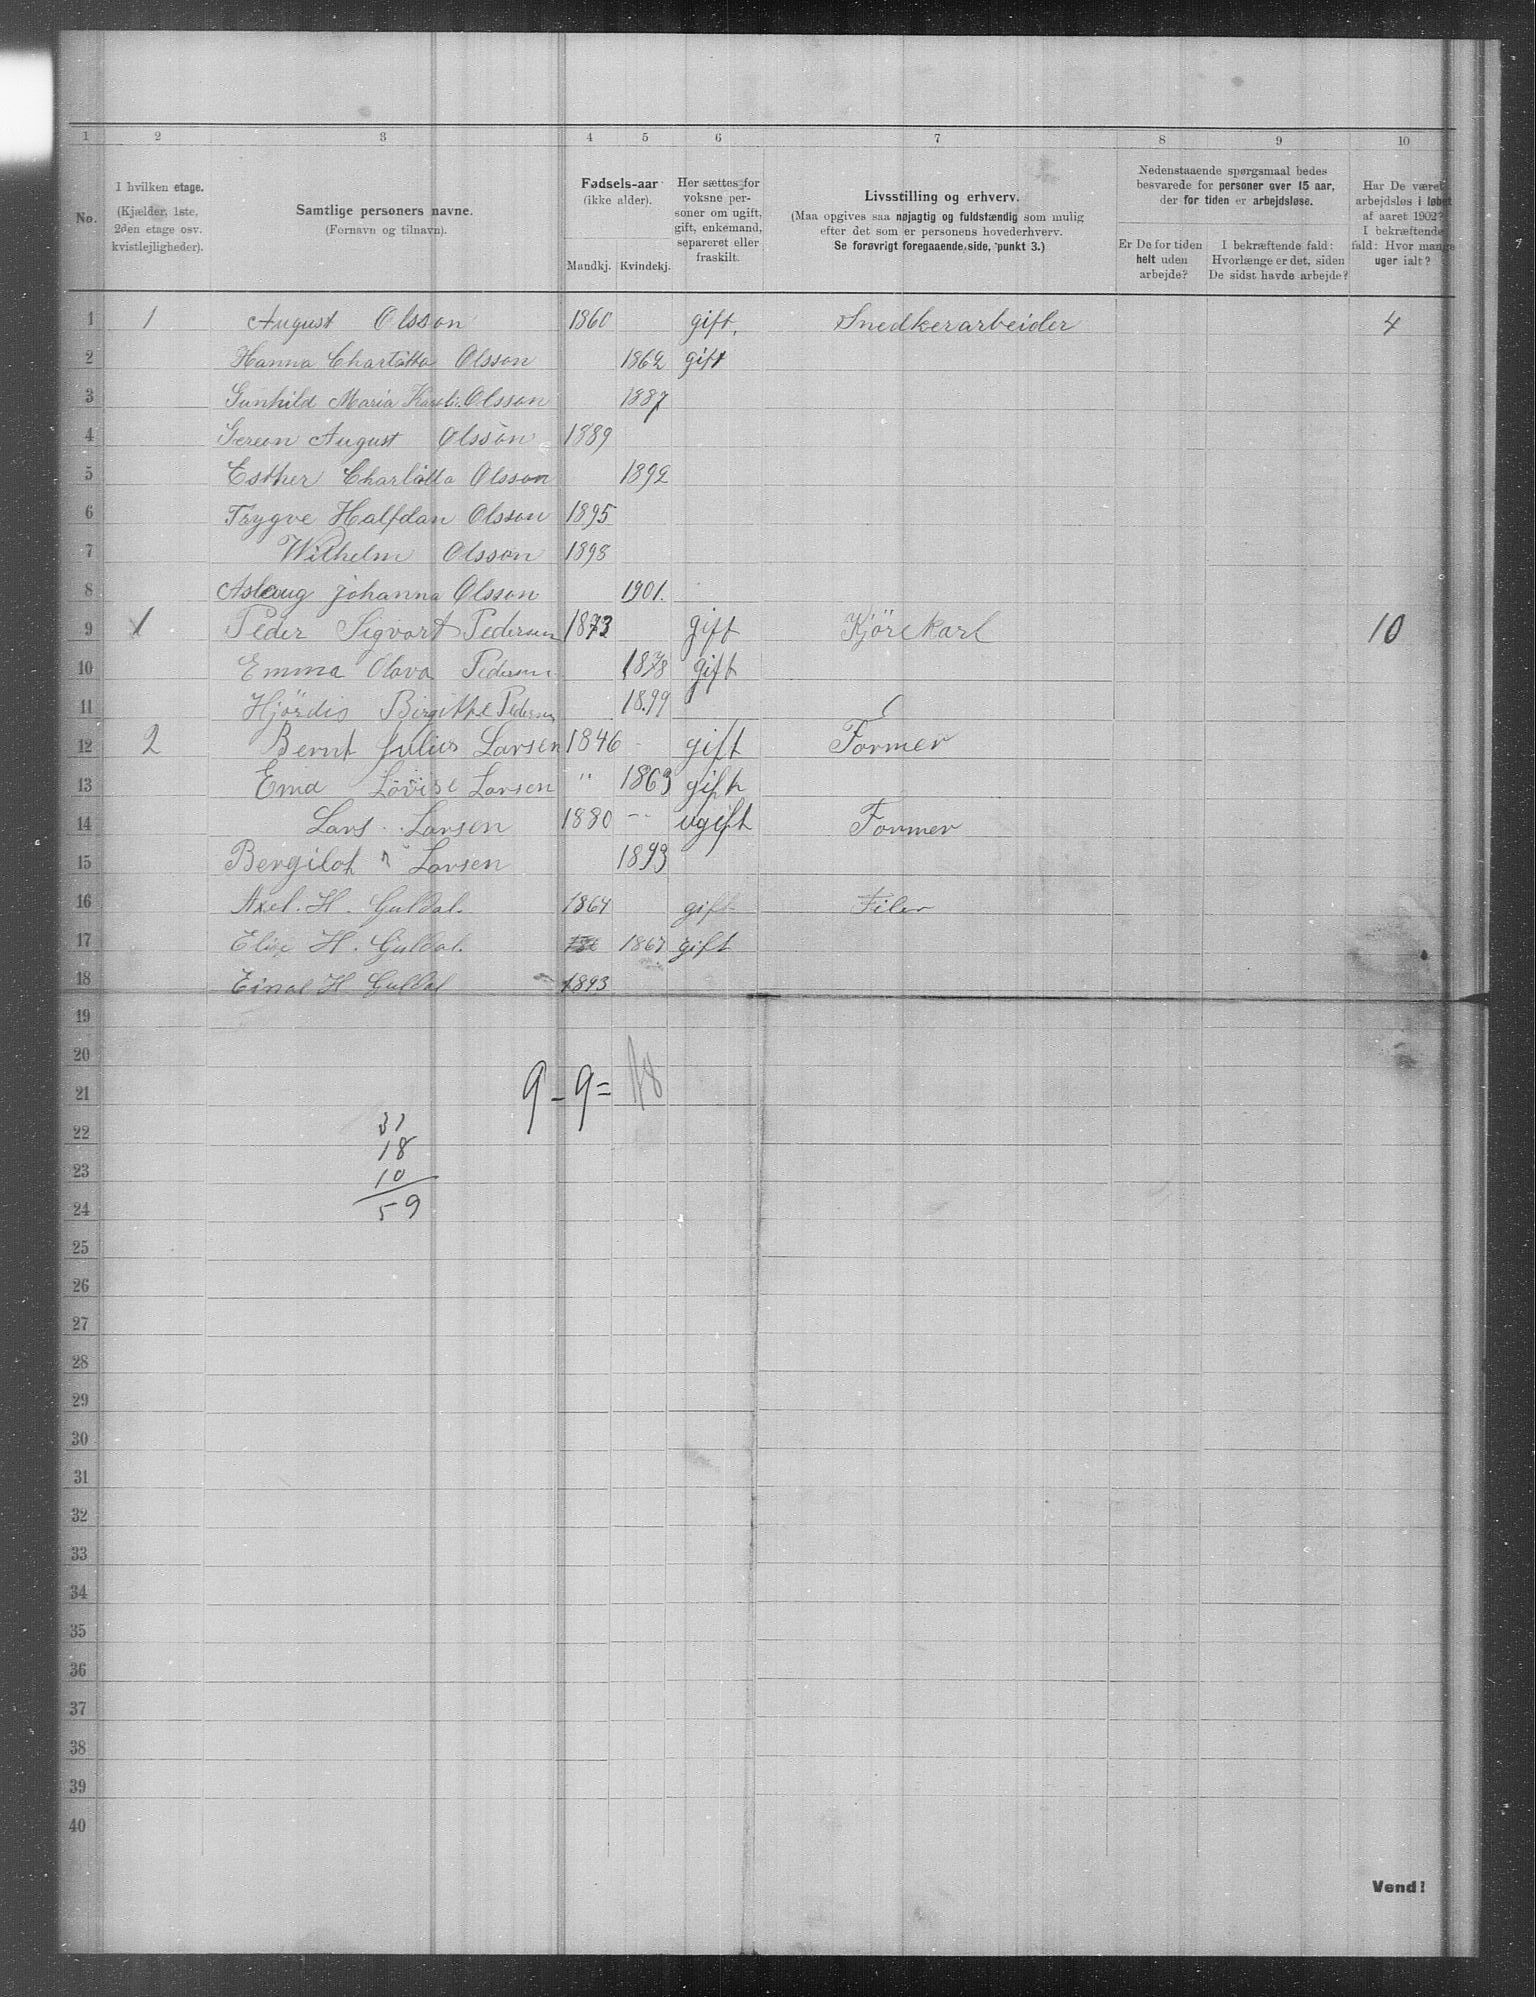 1 2 3 4 5 6 7 8 9 10
No.
I hvilken etage.
(Kjælder, 1ste,
2den etage osv.
kvistlejligheder).
Samtlige personers navne.
(Fornavn og tilnavn).
Fødsels-aar
(ikke alder).
Mandkj. Kvindekj.
Her sættes for
voksne per-
soner om ugift,
gift, enkemand,
separeret eller
fraskilt.
Livsstilling og erhverv.
(Maa opgives saa nøjagtig og fuldstændig som mulig
efter det som er personens hovederhverv.
Se forøvrigt foregaaende side, punkt 3.)
Nedenstaaende spørgsmaal bedes
besvarede for personer over 15 aar,
der for tiden er arbejdsløse.
Er De for tiden
helt uden
arbejde?
I bekræftende fald:
Hvorlænge er det, siden
De sidst havde arbejde?
Har De været
arbejdsløs i løbet
af aaret 1902?
I bekræftende
fald: Hvor mange
uger ialt?
1 1 August Olsson 1860 gift. Snedkerarbeider 4
2 Hanna Charlåtta Olsson 1862 gift
3 Gunhild Maria Olsson 1887
4 Gereon August Olsson 1889
5 Esther Charlåtta Olsson 1892
6 Trygve Halfdan Olsson 1895
7 Wilhelm Olsson 1898
8 Aslaug Johanna Olsson 1901.
9 1 Peder Sigvart Pedersen 1873 gift Kjörekarl 10
10 Emma Olava Pedersen 1878 gift
11 Hjördis Birgitte Pedersen 1899
12 2 Bernt Julius Larsen 1846 - gift Former
13 Lovise Larsen " 1863 gift
14 Lars Larsen 1880 -- ugift Former
15 Bergilot Larsen 1893
16 Axel. H. Guldal. 1864 gift Filer
17 Elise H. Guldal. 1867 gift
18 Einar H Guldal 1893
19
20
21 9 - 9 = 18
22 31
18
23 10
24 59
25
26
27
28
29
30
31
32
33
34
35
36
37
38
39
40
Vend!